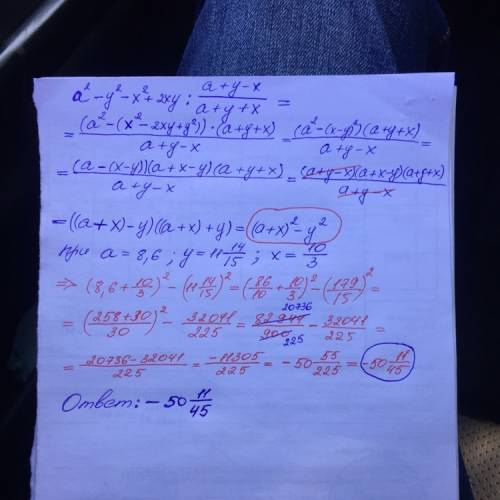 a² - y² - x² + 2xy : (a+y-x)/(a+y+x) =
= (a² - (x² - 2xy + y²))·(a+y+x)/(a+y-x) = (a² - (x-y)²)(a+y+x)/(a+y-x) =
= (a-(x-y))(a+x-y)(a+y+x)/(a+y-x) = (a+y-x)(a+x-y)(a+y+x)/(a+y-x)
= ((a+x)-y)((a+x)+y) = (a+x)² - y²
при a = 8,6 ; y = 11 14/15 ; x = 10/3
⇒ (8,6 + 10/3)² - (11 14/15)² = (86/10 + 10/3)² - (179/15)² =
= ((258+30)/30)² - 32041/225 = 82944/900 20736/225 - 32041/225 =
= (20736 - 32041)/225 = -11305/225 = -50 55/225 = -50 11/45
Ответ: - 50 11/45